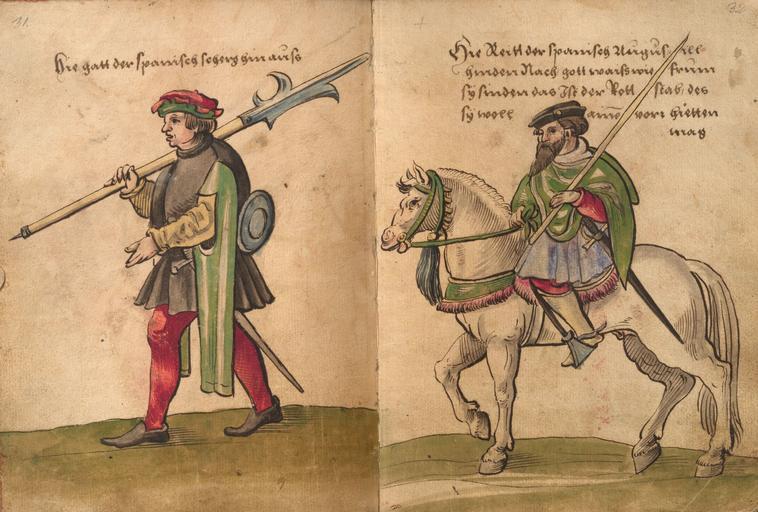 31
Hie gatt der spanisch scherg hin auss
32
Hie Reitt der spanisch
hinden Nach gott waiss wie frum
sy sinden das Ist der Rott stab des
sy woll vor hietten
mag